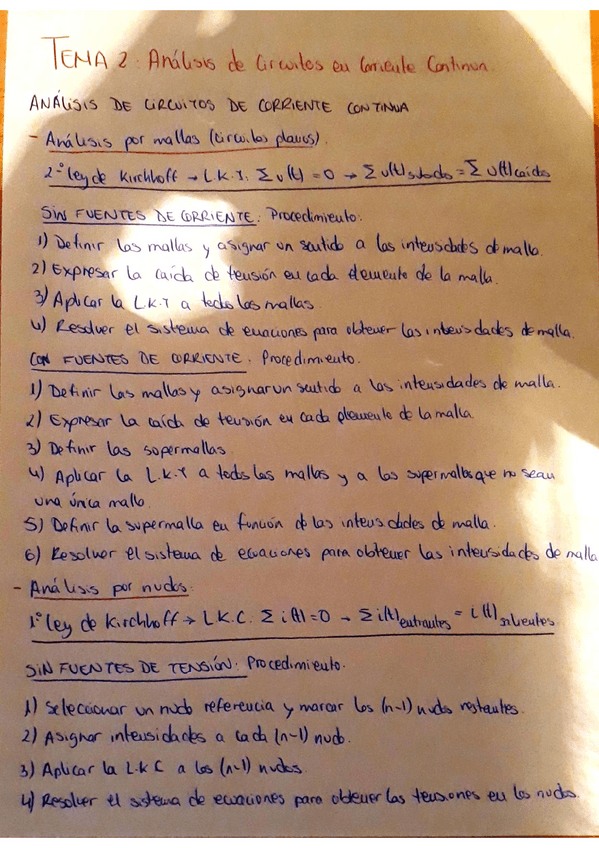 TEMA 2: Análisis de Circuitos en Corriente Continua.
ANÁLISIS DE CIRCUITOS DE CORRIENTE CONTINUA
- Análisis por mallas (circuitos planos).
2º ley de Kirchhoff → L.K.T: Σ v(t) = 0 → Σ v(t) subidas = Σ v(t) caídas
SIN FUENTES DE CORRIENTE: Procedimiento:
1) Definir las mallas y asignar un sentido a las intensidades de malla.
2) Expresar la caída de tensión en cada elemento de la malla.
3) Aplicar la L.K.T a todas las mallas.
4) Resolver el sistema de ecuaciones para obtener las intensidades de malla.
CON FUENTES DE CORRIENTE: Procedimiento.
1) Definir las mallas y asignar un sentido a las intensidades de malla.
2) Expresar la caída de tensión en cada elemento de la malla.
3) Definir las supermallas
4) Aplicar la L.K.T a todas las mallas y a las supermallas que no sean
una única malla.
5) Definir la supermalla en función de las intensidades de malla.
6) Resolver el sistema de ecuaciones para obtener las intensidades de malla
- Análisis por nudos:
1º ley de Kirchhoff → L.K.C. Σ i(t) = 0 → Σ i(t) entrantes = i(t) salientes.
SIN FUENTES DE TENSIÓN: Procedimiento.
1) Seleccionar un nudo referencia y marcar los (n-1) nudos restantes.
2) Asignar intensidades a cada (n-1) nudo.
3) Aplicar la L.K.C a los (n-1) nudos
4) Resolver el sistema de ecuaciones para obtener las tensiones en los nudos.